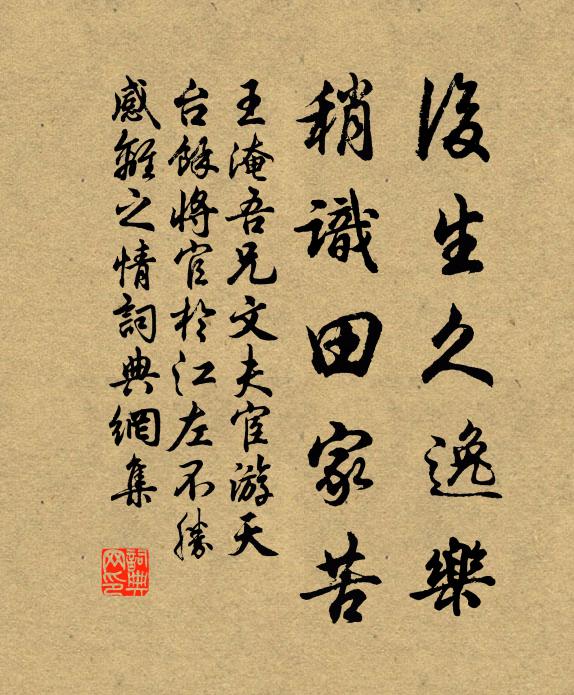 後生久逸樂
稍識田家苦
王淹吾兄文夫宦游天
台餘將官於江左不勝
感離之情詞典網集
詞典网印